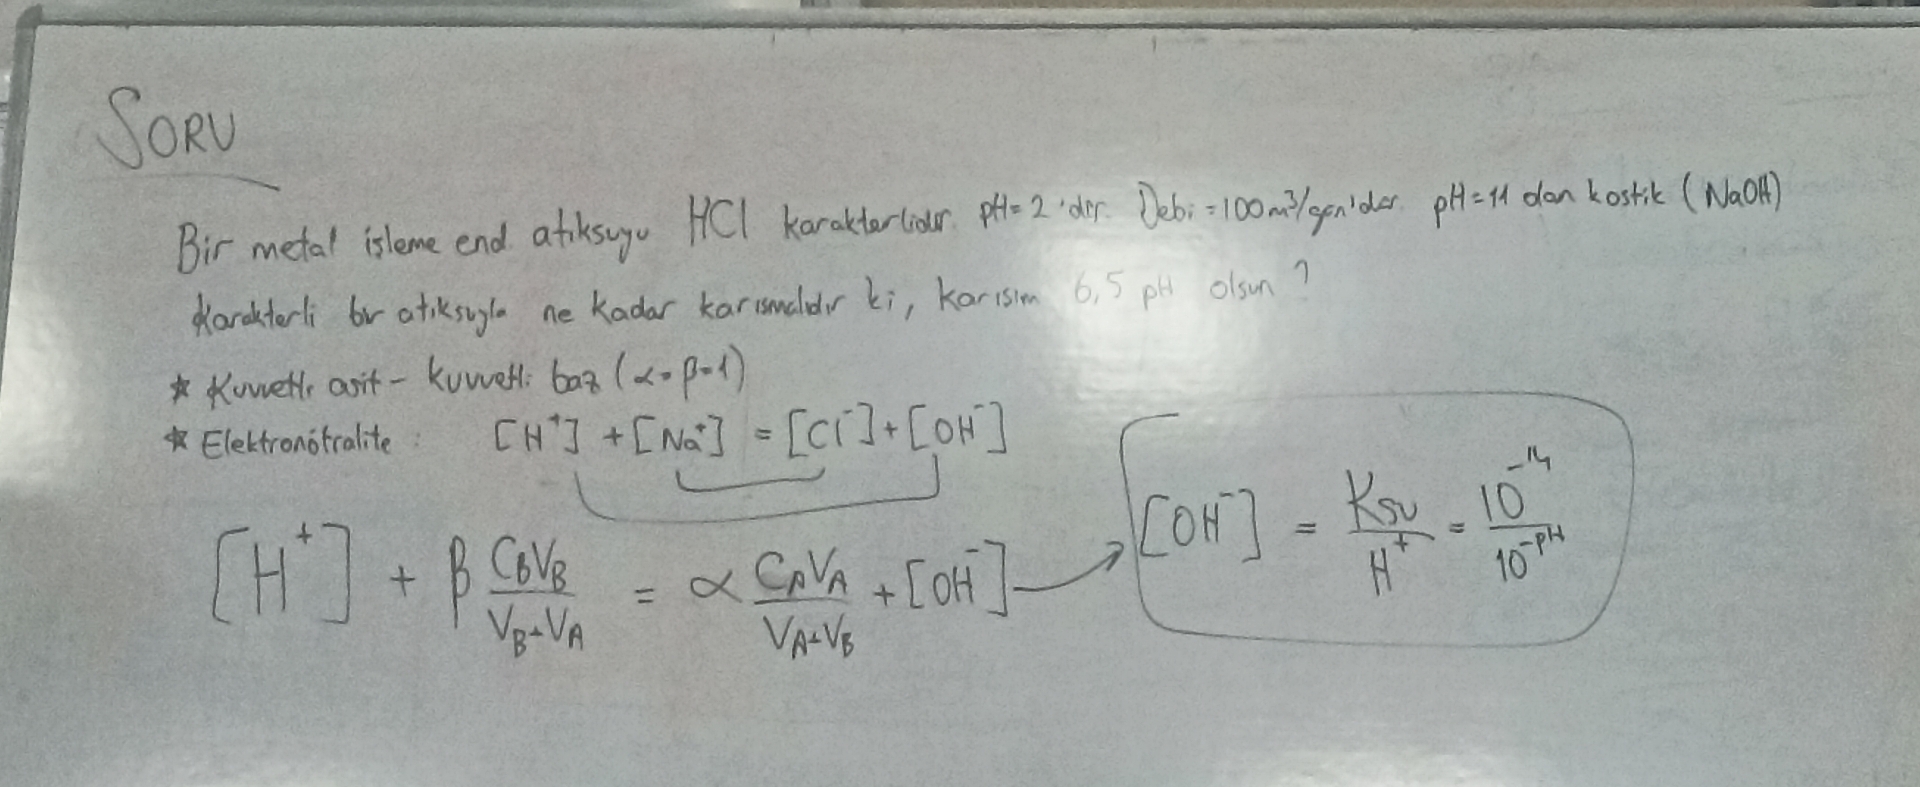 SORU
Bir metal işleme end. atıksuyu HCl karakterlidir. pH=2'dir. Debi=100m³/gün'dür. pH=11 olan kostik (NaOH)
karakterli bir atıksuyla ne kadar karışmalıdır ki, karışım 6,5 pH olsun?
* Kuvvetli asit - kuvvetli baz (α=β=1)
* Elektronötralite: [H⁺] + [Na⁺] = [Cl⁻] + [OH⁻]
[H⁺] + β CBVB / VB+VA = α CAVA / VA+VB + [OH⁻] → [OH⁻] = Ksu / H⁺ = 10⁻¹⁴ / 10⁻ᵖᴴ